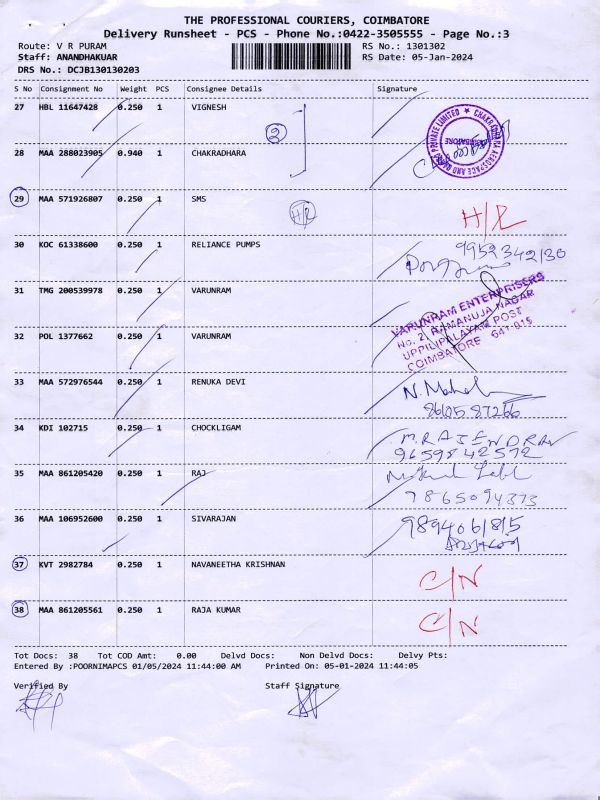 THE PROFESSIONAL COURIERS, COIMBATORE
Delivery Runsheet - PCS - Phone No.:0422-3505555 - Page No.:3
Route: V R PURAM RS No.: 1301302
Staff: ANANDHAKUAR RS Date: 05-Jan-2024
DRS No.: DCJB130130203
S No Consignment No Weight PCS Consignee Details Signature
27 HBL 11647428 0.250 1 VIGNESH
2
28 MAA 288023905 0.940 1 CHAKRADHARA
29 MAA 571926807 0.250 1 SMS H/R H/R
30 KOC 61338600 0.250 1 RELIANCE PUMPS 9952342130
31 TMG 200539978 0.250 1 VARUNRAM
VARUNRAM ENTERPRISERS
No. 2, RAMANUJA NAGAR
UPPILIPALAYAM POST
COIMBATORE 641-015
32 POL 1377662 0.250 1 VARUNRAM
33 MAA 572976544 0.250 1 RENUKA DEVI
8610587266
34 KDI 102715 0.250 1 CHOCKLIGAM M.RAJENDRAN
9659842572
35 MAA 861205420 0.250 1 RAJ
7865094373
36 MAA 106952600 0.250 1 SIVARAJAN 9894061815
37 KVT 2982784 0.250 1 NAVANEETHA KRISHNAN C/N
38 MAA 861205561 0.250 1 RAJA KUMAR C/N
Tot Docs: 38 Tot COD Amt: 0.00 Delvd Docs: Non Delvd Docs: Delvy Pts:
Entered By :POORNIMAPCS 01/05/2024 11:44:00 AM Printed On: 05-01-2024 11:44:05
Verified By Staff Signature